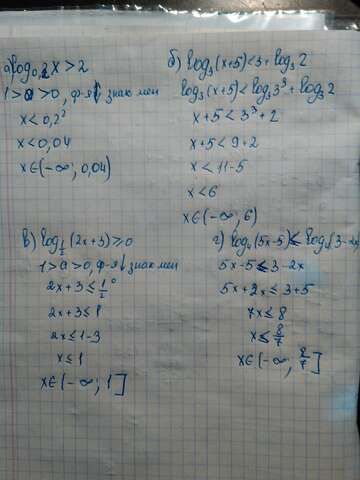 а) log₀,₂ x > 2
1 > a > 0, ф-я ↓, знак мен
x < 0,2²
x < 0,04
x ∈ (-∞; 0,04)
б) log₃ (x+5) < 3 + log₃ 2
log₃ (x+5) < log₃ 3³ + log₃ 2
x+5 < 3³ + 2
x+5 < 9+2
x < 11-5
x < 6
x ∈ (-∞; 6)
в) log_½ (2x+3) ≥ 0
1 > a > 0, ф-я ↓ знак мен
2x+3 ≤ ½⁰
2x+3 ≤ 1
2x ≤ 1-3
x ≤ 1
x ∈ (-∞; 1]
5x-5 ≤ 3-2x
5x+2x ≤ 3+5
7x ≤ 8
x ≤ 8/7
x ∈ (-∞; 8/7]